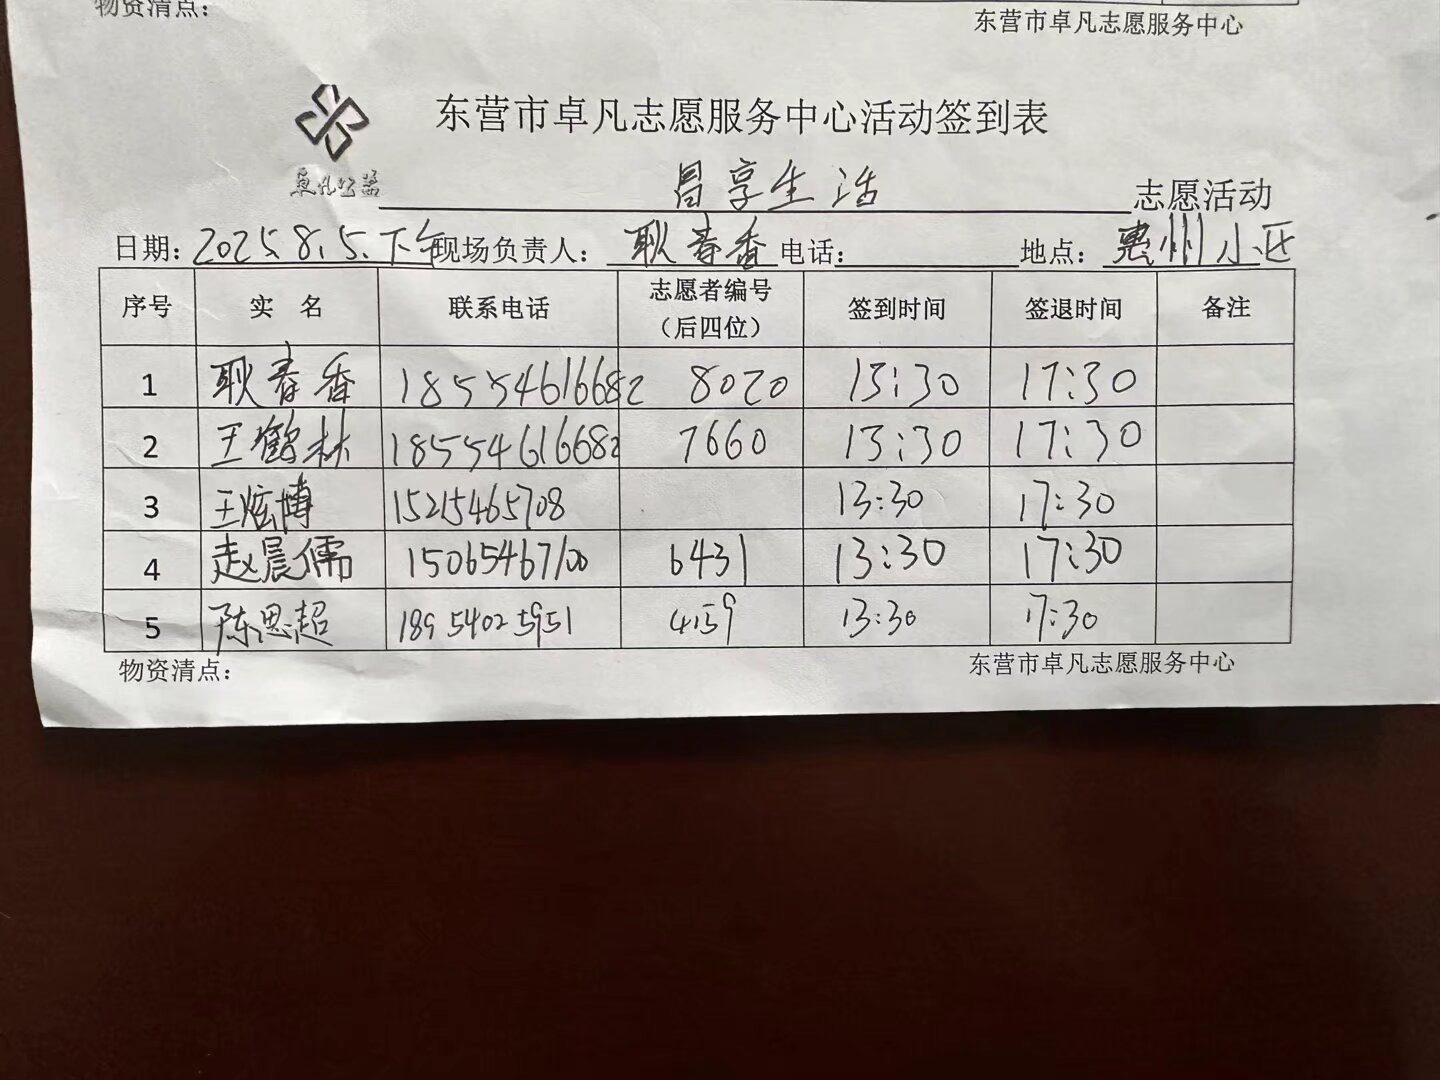 物资清点：
东营市卓凡志愿服务中心
东营市卓凡志愿服务中心活动签到表
卓凡公益
昌享生活 志愿活动
日期：2025.8.5.下午 现场负责人：耿春香 电话： 地点：惠州小区
序号 实 名 联系电话 志愿者编号（后四位） 签到时间 签退时间 备注
1 耿春香 18554616682 8020 13:30 17:30
2 王鹤林 18554616682 7660 13:30 17:30
3 王炫博 15215465708 13:30 17:30
4 赵晨儒 15065467100 6431 13:30 17:30
5 陈思超 18954025951 4159 13:30 17:30
物资清点：
东营市卓凡志愿服务中心